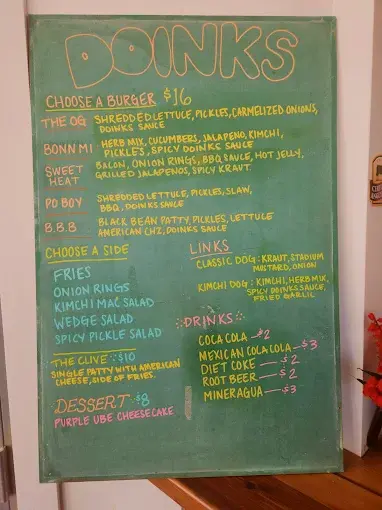 DOINKS
CHOOSE A BURGER $16
THE OG SHREDDED LETTUCE, PICKLES, CARMELIZED ONIONS,
DOINKS SAUCE
BONN MI HERB MIX, CUCUMBERS, JALAPENO, KIMCHI,
PICKLES, SPICY DOINKS SAUCE
SWEET HEAT BACON, ONION RINGS, BBQ SAUCE, HOT JELLY,
GRILLED JALAPENOS, SPICY KRAUT
PO BOY SHREDDED LETTUCE, PICKLES, SLAW,
BBQ, DOINKS SAUCE
B.B.B BLACK BEAN PATTY, PICKLES, LETTUCE
AMERICAN CHZ, DOINKS SAUCE
CHOOSE A SIDE
FRIES
ONION RINGS
KIMCHI MAC SALAD
WEDGE SALAD
SPICY PICKLE SALAD
THE CLIVE $10
SINGLE PATTY WITH AMERICAN
CHEESE, SIDE OF FRIES.
DESSERT $8
PURPLE UBE CHEESECAKE
LINKS
CLASSIC DOG: KRAUT, STADIUM
MUSTARD, ONION
KIMCHI DOG: KIMCHI, HERB MIX,
SPICY DOINKS SAUCE,
FRIED GARLIC
DRINKS
COCA COLA — $2
MEXICAN COCA COLA — $3
DIET COKE — $2
ROOT BEER — $2
MINERAGUA — $3